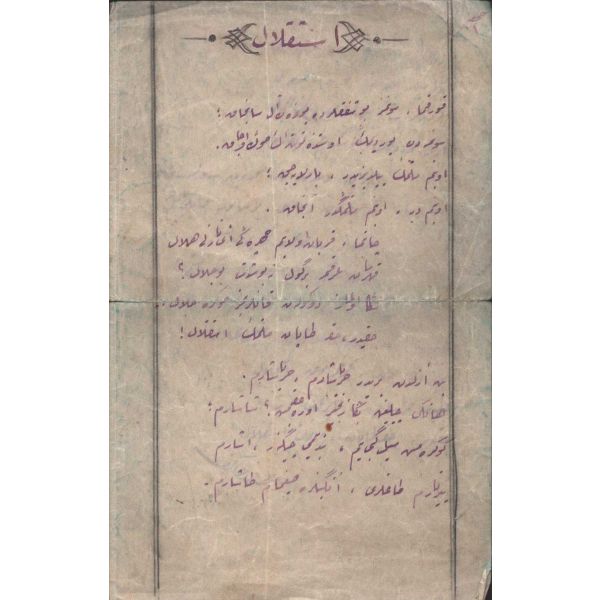 استقلال
قورقما، سونمز بو شفقلرده یوزن آل سانجاق؛
سونمه دن یوردیمك اوستنده توتن اك صوك اوجاق.
او بنم ملتمك ییلدیزیدر، پارلایه جق؛
او بنمدر، او بنم ملتمكدر آنجاق.
چاتما، قربان اولایم چهره كی ای نازلی هلال
قهرمان عرقمه بر گول نه بو شدت بو جلال؟
سكا اولماز دوكولن قانلریمز صوكره حلال،
حقیدر، حقه طاپان ملتمك استقلال!
بن ازلدن بریدر حر یاشادم، حر یاشارم.
هانكی چیلغین بكا زنجیر اوره جقمش؟ شاشارم؛
كوكره مش سیل گبی یم، بندیمی چیگنر، آشارم
ییرتارم طاغلری، انگینلره صیغمام طاشارم.